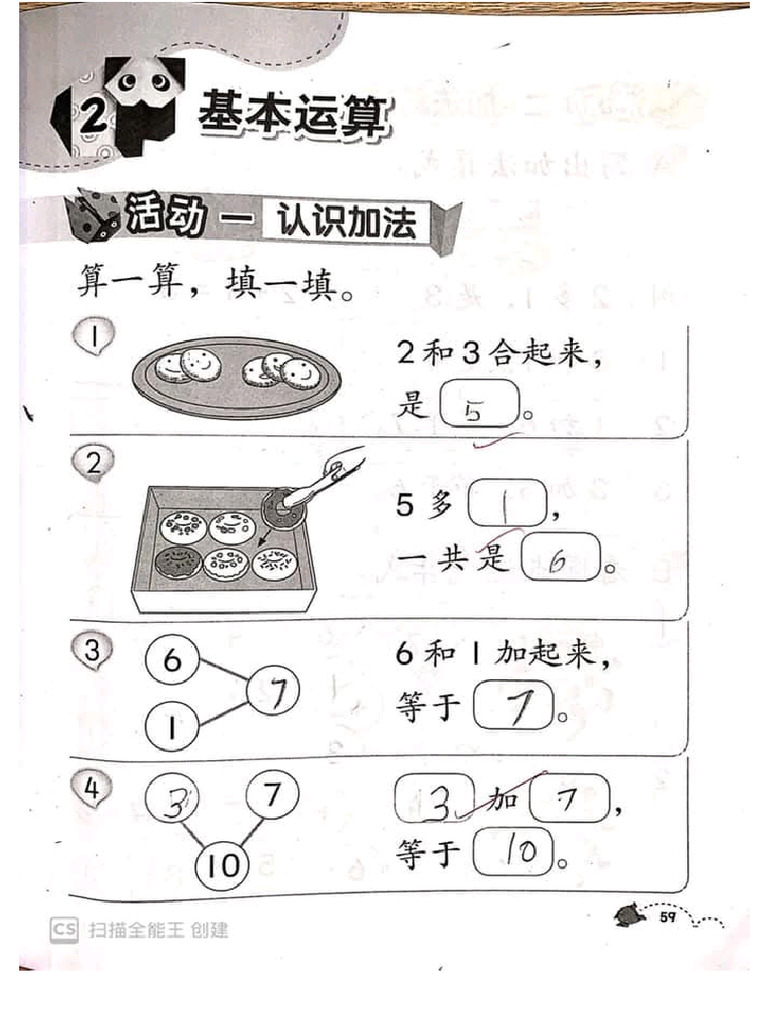 2 基本运算
活动一 认识加法
算一算，填一填。
1
2和3合起来，
是 5 。
2
5多 1 ，
一共是 6 。
3
6
7
1
6和1加起来，
等于 7 。
4
3 7
10
3 加 7 ，
等于 10 。
59
CS 扫描全能王 创建